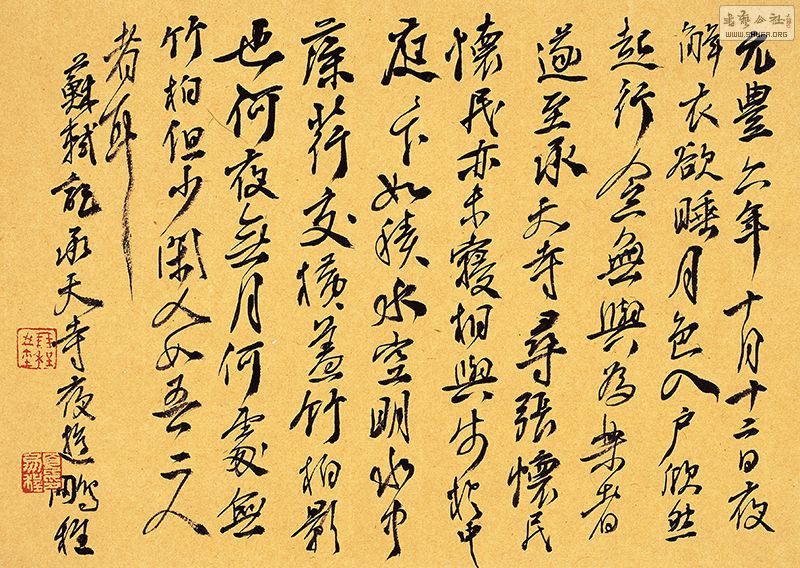 元豐六年十月十二日夜
解衣欲睡月色入户欣然
起行念無與為樂者
遂至承天寺尋張懷民
懷民亦未寢相與步於中
庭〻下如積水空明水中
藻荇交橫蓋竹柏影
也何夜無月何處無
竹柏但少閑人如吾二人
者耳
蘇軾記承天寺夜遊鵬程
書藝公社
WWW.SHUFA.ORG